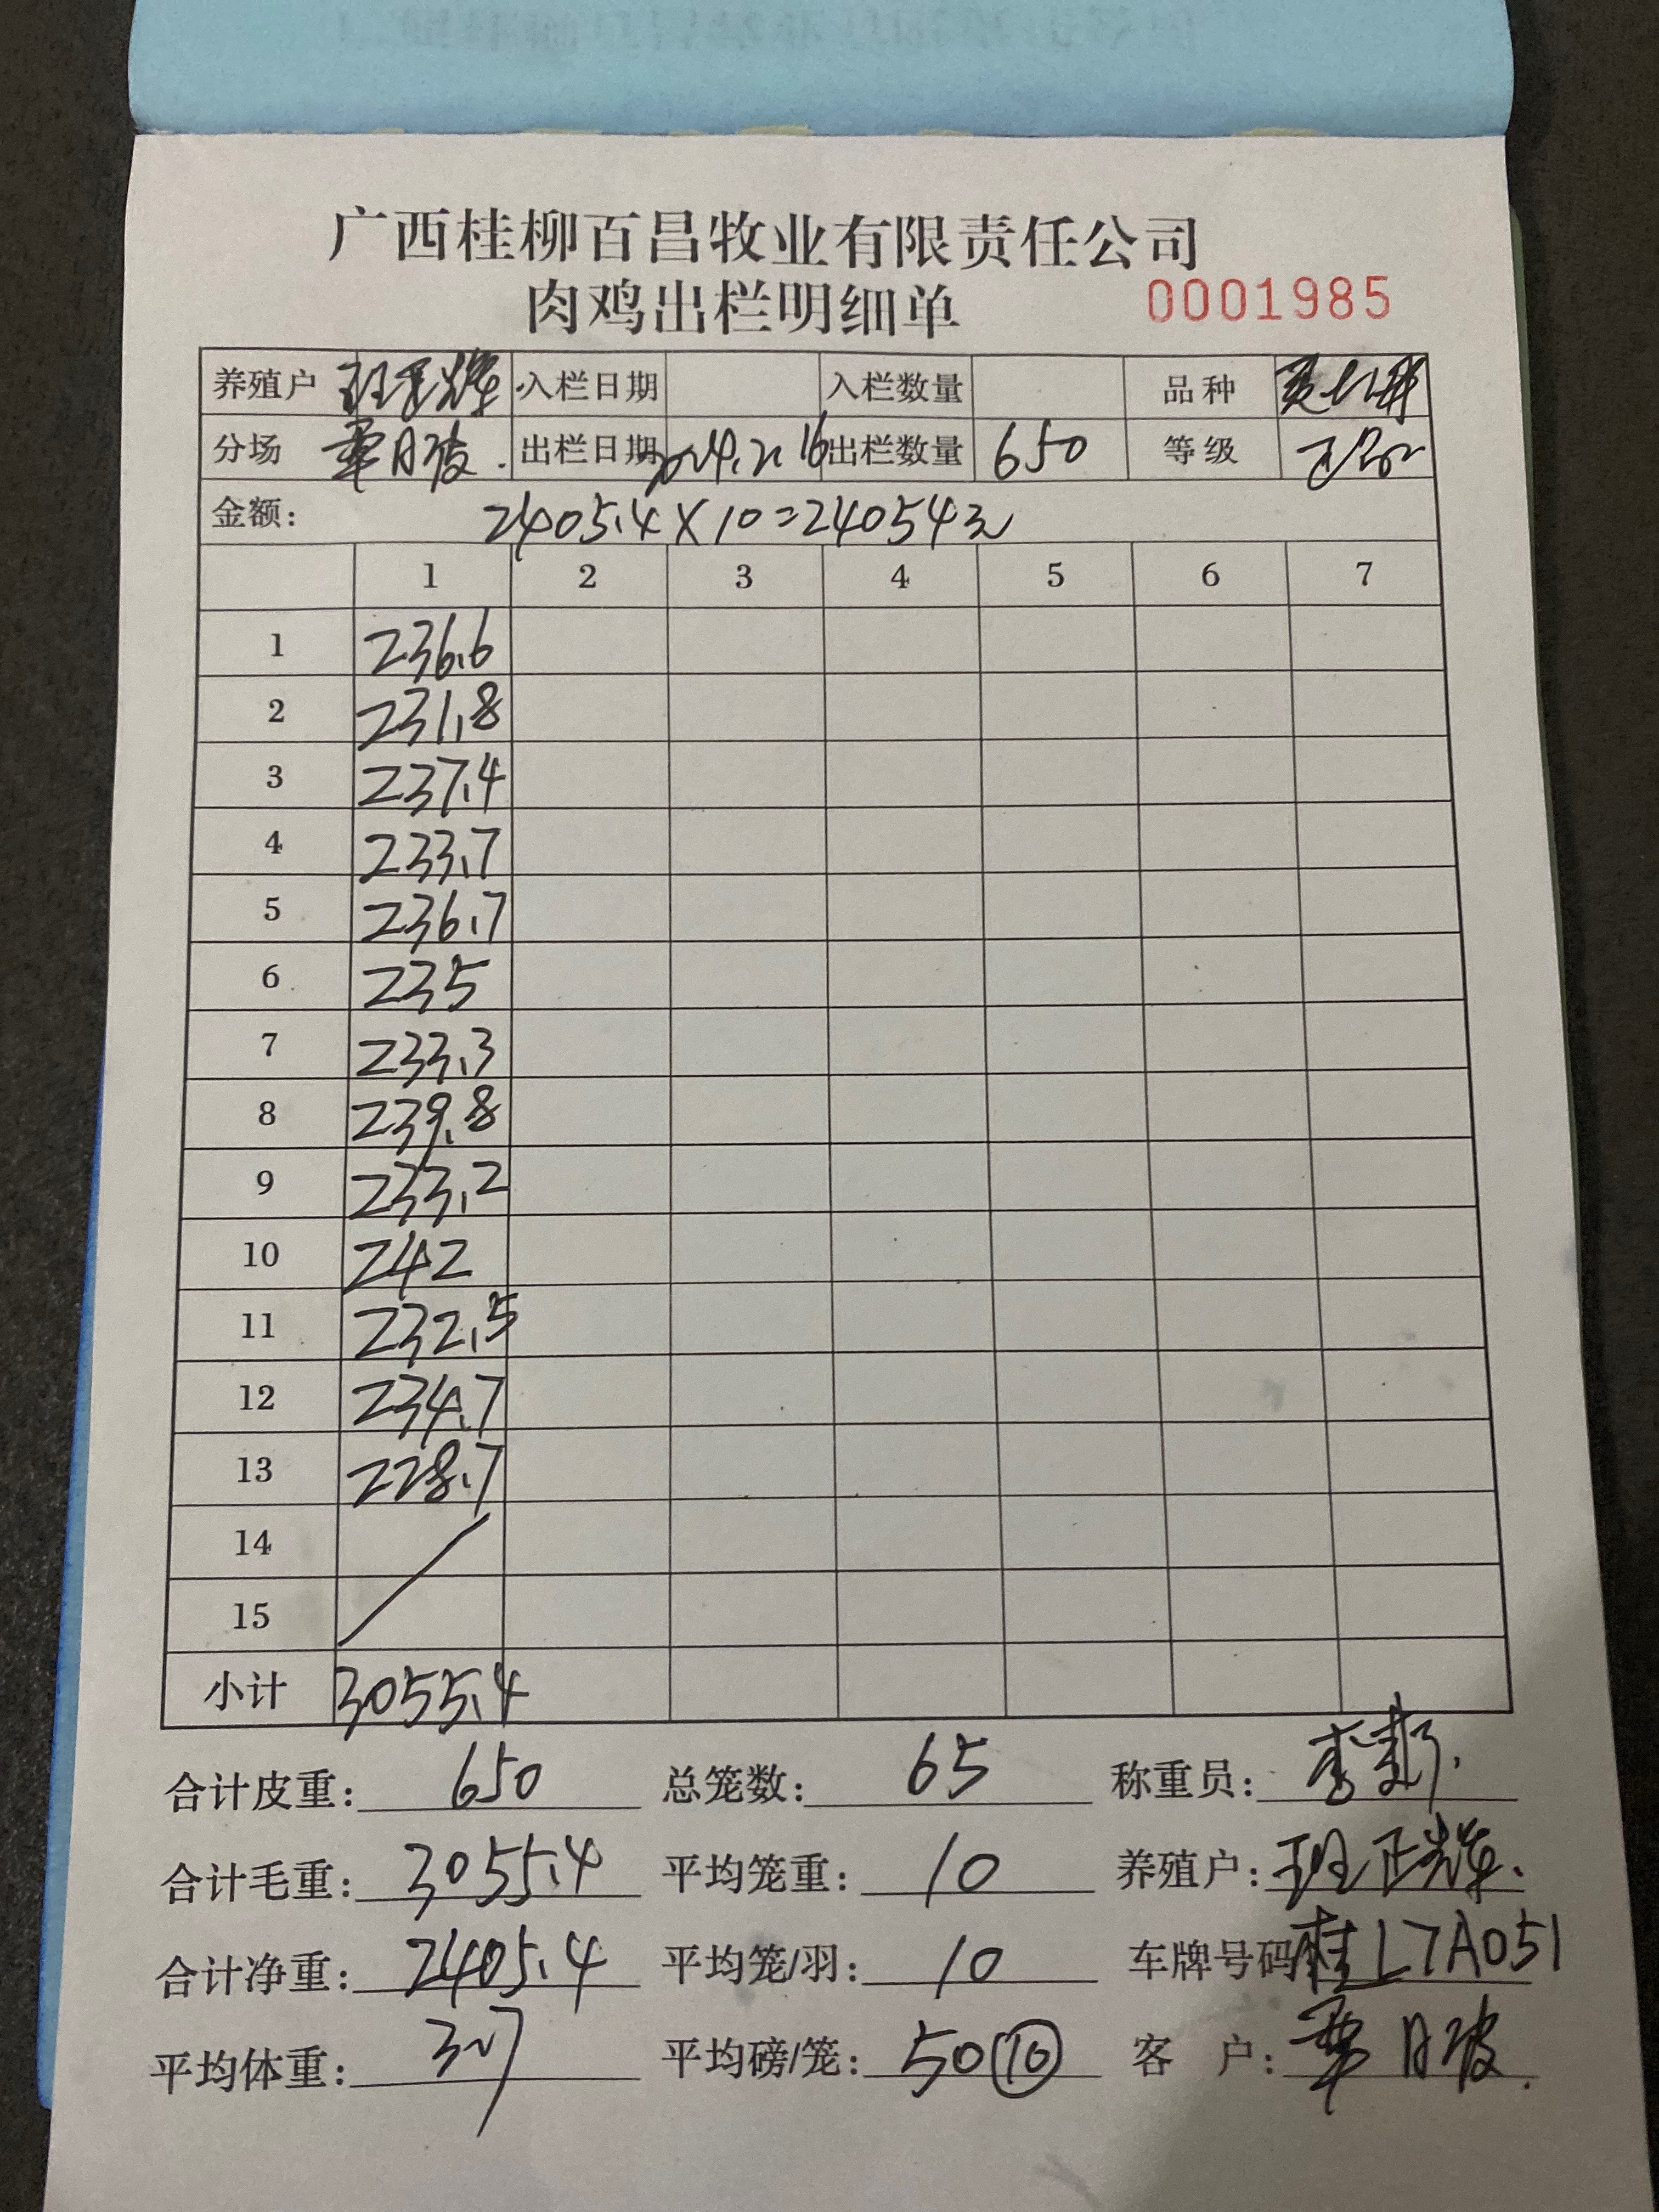 广西桂柳百昌牧业有限责任公司
肉鸡出栏明细单 0001985
养殖户 班正辉 入栏日期 入栏数量 品种
分场 覃月波 出栏日期 出栏数量 650 等级 正品
金额: 2405.4×10=24054元
1 2 3 4 5 6 7
1 236.6
2 231.8
3 237.4
4 233.7
5 236.7
6 235
7 233.3
8 239.8
9 233.2
10 242
11 232.5
12 234.7
13 228.7
14
15
小计 3055.4
合计皮重: 650 总笼数: 65 称重员:
合计毛重: 3055.4 平均笼重: 10 养殖户: 班正辉
合计净重: 2405.4 平均笼/羽: 10 车牌号码 桂L7A051
平均体重: 3.7 平均磅/笼: 50⑩ 客 户: 覃月波